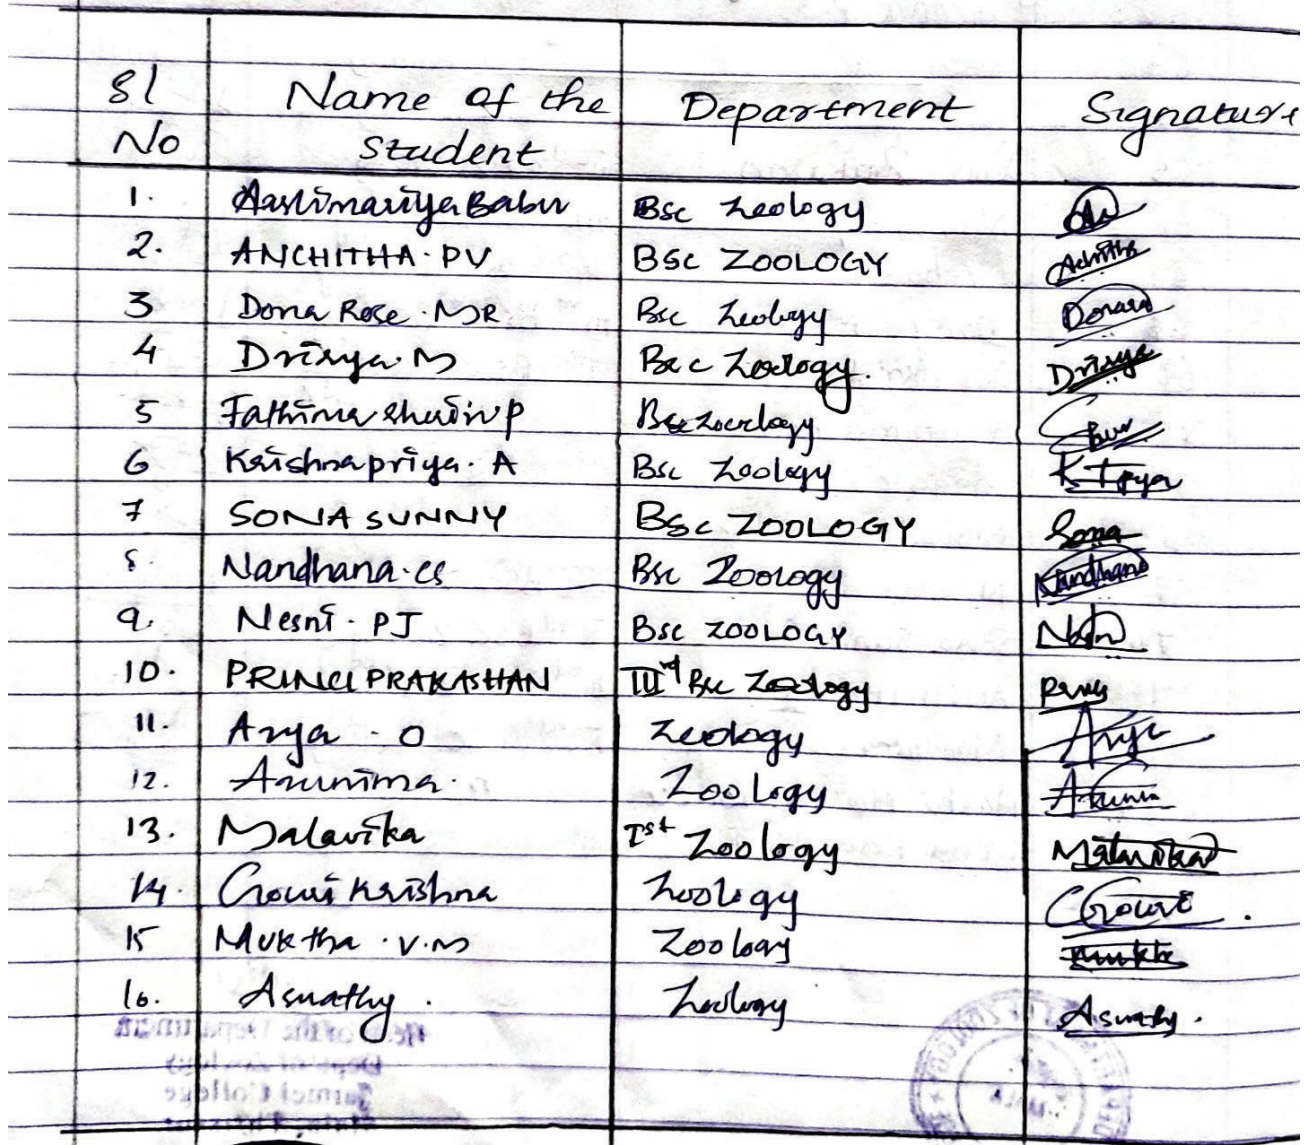 Sl No Name of the student Department Signature
1. Aaslimariya Babu BSc Zoology
2. ANCHITHA. PV BSc ZOOLOGY Achitha
3 Dona Rose. MR Bsc Zoology
4 Drisya. M Bsc Zoology. Drisya
5 Fathima sherin p Bsc zoology
6 Krishnapriya. A Bsc Zoology
7 SONA SUNNY BSc ZOOLOGY Sona
8. Nandhana. cs Bsc Zoology Nandhana
9. Nesni. PJ BSc ZOOLOGY
10. PRINCI PRAKASHAN III rd Bsc Zoology
11. Arya. O Zoology Arya
12. Arunima. Zoology
13. Malavika Ist Zoology Malavika
14. Gowri Krishna Zoology Gowri.
15 Muktha. V.M Zoology
16. Aswathy. Zoology Aswathy.
Head of the Department
Dept of Zoology
Carmel College
Mala, Thrissur